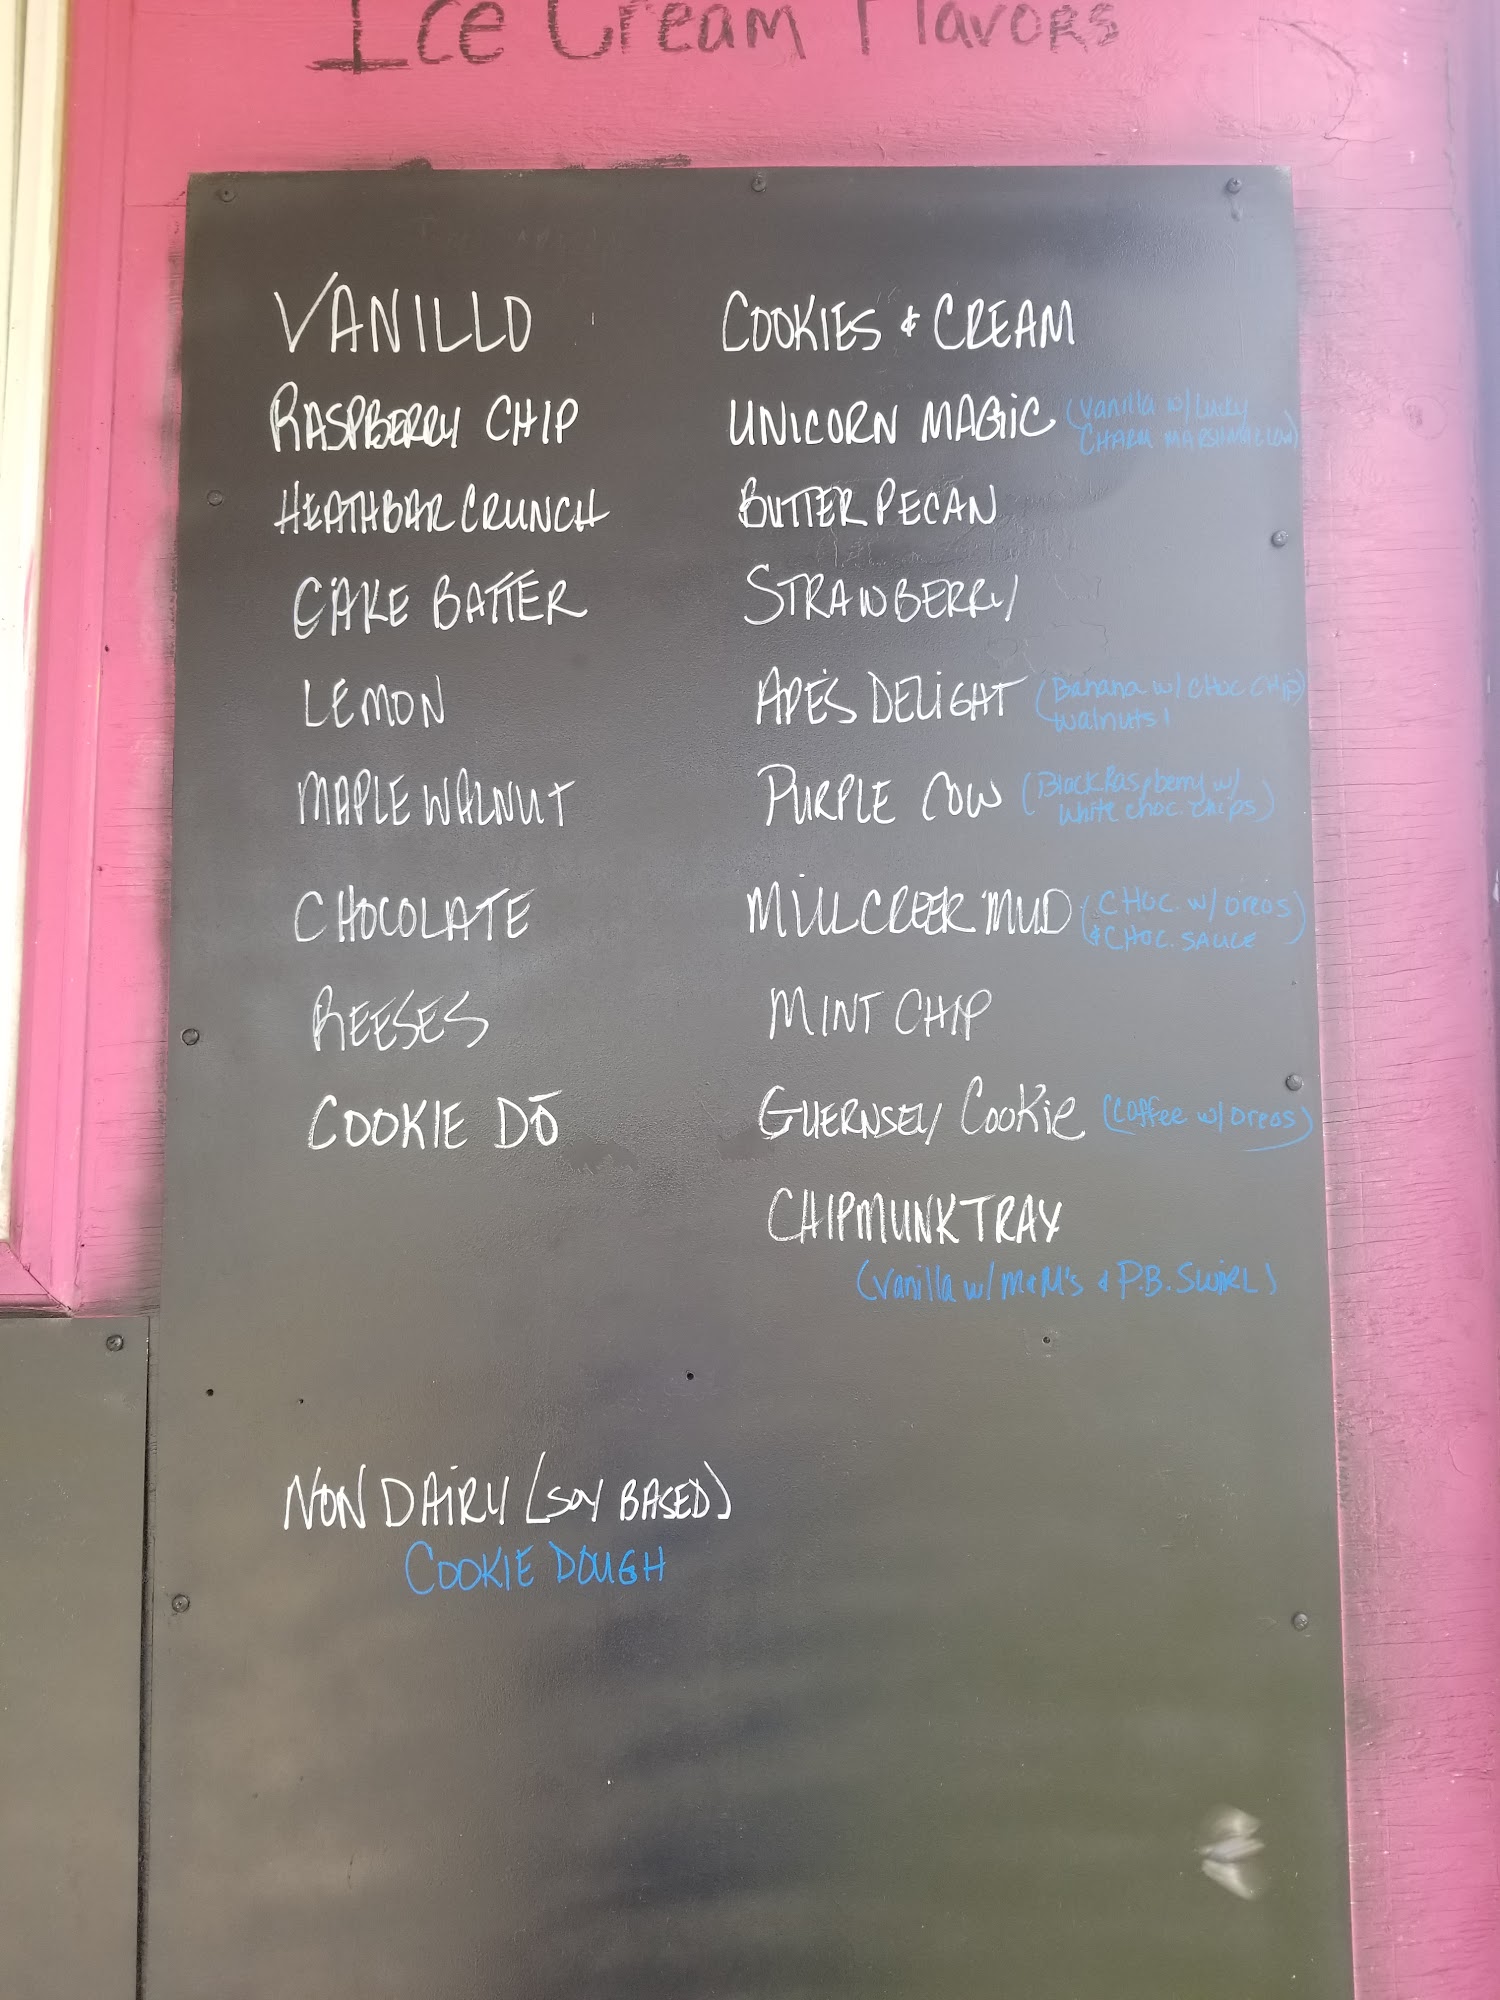 Ice Cream Flavors
VANILLO
RASPBERRY CHIP
HEATHBAR CRUNCH
CAKE BATTER
LEMON
MAPLE WALNUT
CHOCOLATE
REESES
COOKIE DŌ
COOKIES & CREAM
UNICORN MAGIC (Vanilla w/ Lucky
CHARM MARSHMALLOW)
BUTTER PECAN
STRAWBERRY
APE'S DELIGHT (Banana w/ CHOC CHIP
walnuts)
PURPLE COW (Black Raspberry w/
white choc. chips)
MILLCREEK MUD (CHOC. w/ oreos
& CHOC. SAUCE)
MINT CHIP
GUERNSEY COOKIE (Coffee w/ oreos)
CHIPMUNK TRAX
(vanilla w/ M&M's & P.B. SWIRL)
NON DAIRY (SOY BASED)
COOKIE DOUGH